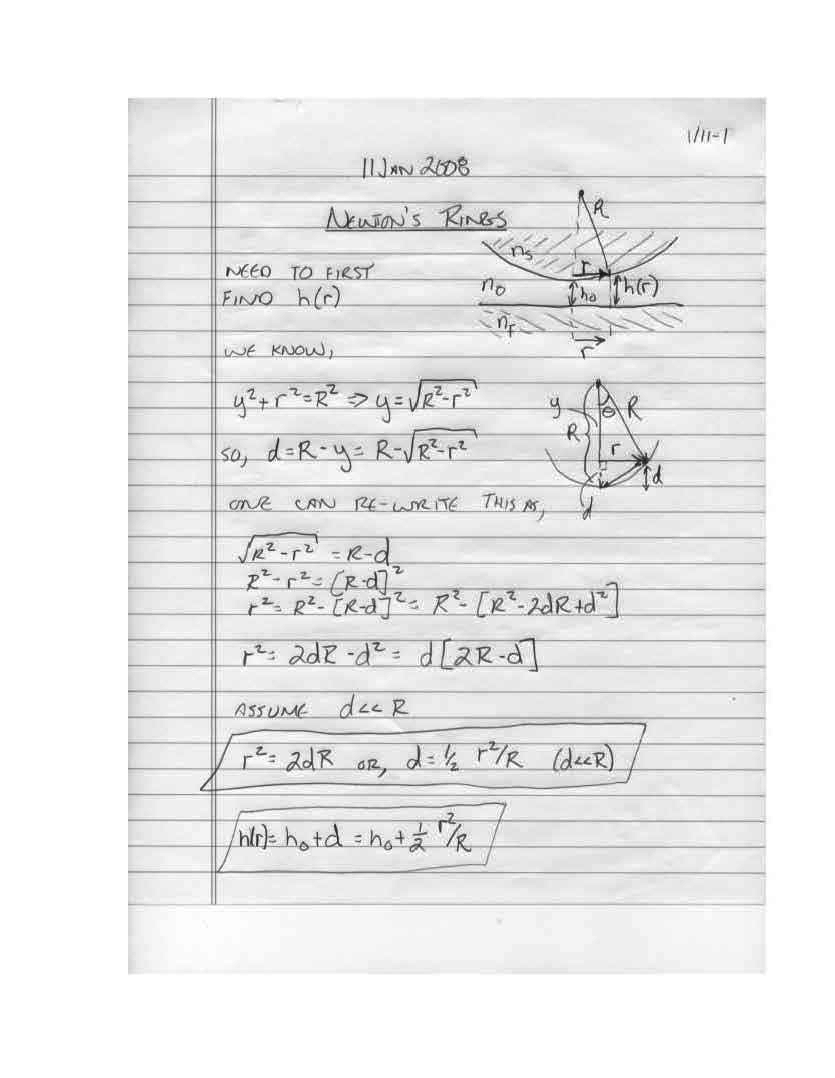 1/11-1
11 JAN 2008
NEWTON'S RINGS
R
nₛ
r
NEED TO FIRST
FIND h(r)
n₀
h₀
h(r)
r
WE KNOW,
y² + r² = R² => y = √(R²-r²)
y
θ
R
R
r
so, d = R - y = R - √(R²-r²)
d
d
ONE CAN RE-WRITE THIS AS,
√(R²-r²) = R-d
R² - r² = [R-d]²
r² = R² - [R-d]² = R² - [R² - 2dR + d²]
r² = 2dR - d² = d[2R-d]
ASSUME d<<R
r² = 2dR OR, d = ½ r²/R (d<<R)
h(r) = h₀ + d = h₀ + ½ r²/R